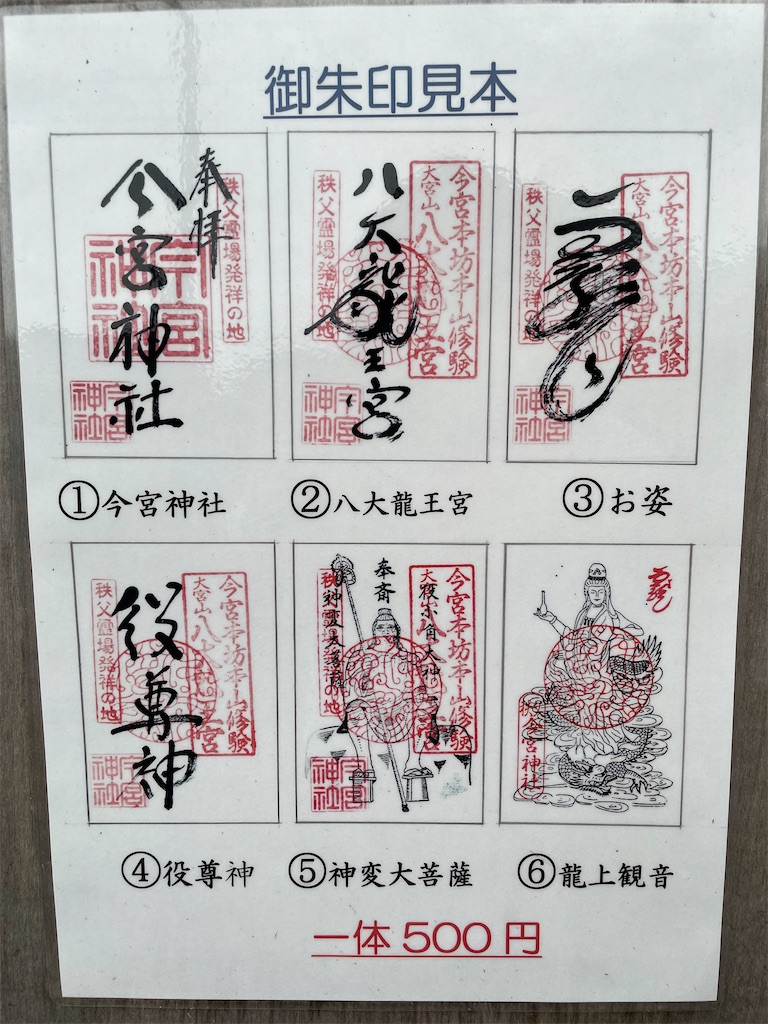 御朱印見本
奉拝
秩父霊場発祥の地
今宮神社
今宮神社
今宮神社
今宮本坊本山修験
大宮山八大龍王宮
八大龍王宮
秩父霊場発祥の地
今宮神社
今宮本坊本山修験
大宮山八大龍王宮
秩父霊場発祥の地
今宮神社
①今宮神社
②八大龍王宮
③お姿
今宮本坊本山修験
大宮山八大龍王宮
役尊神
秩父霊場発祥の地
今宮神社
今宮本坊本山修験
奉斎
秩父霊場発祥の地
今宮神社
今宮神社
④役尊神
⑤神変大菩薩
⑥龍上観音
一体500円